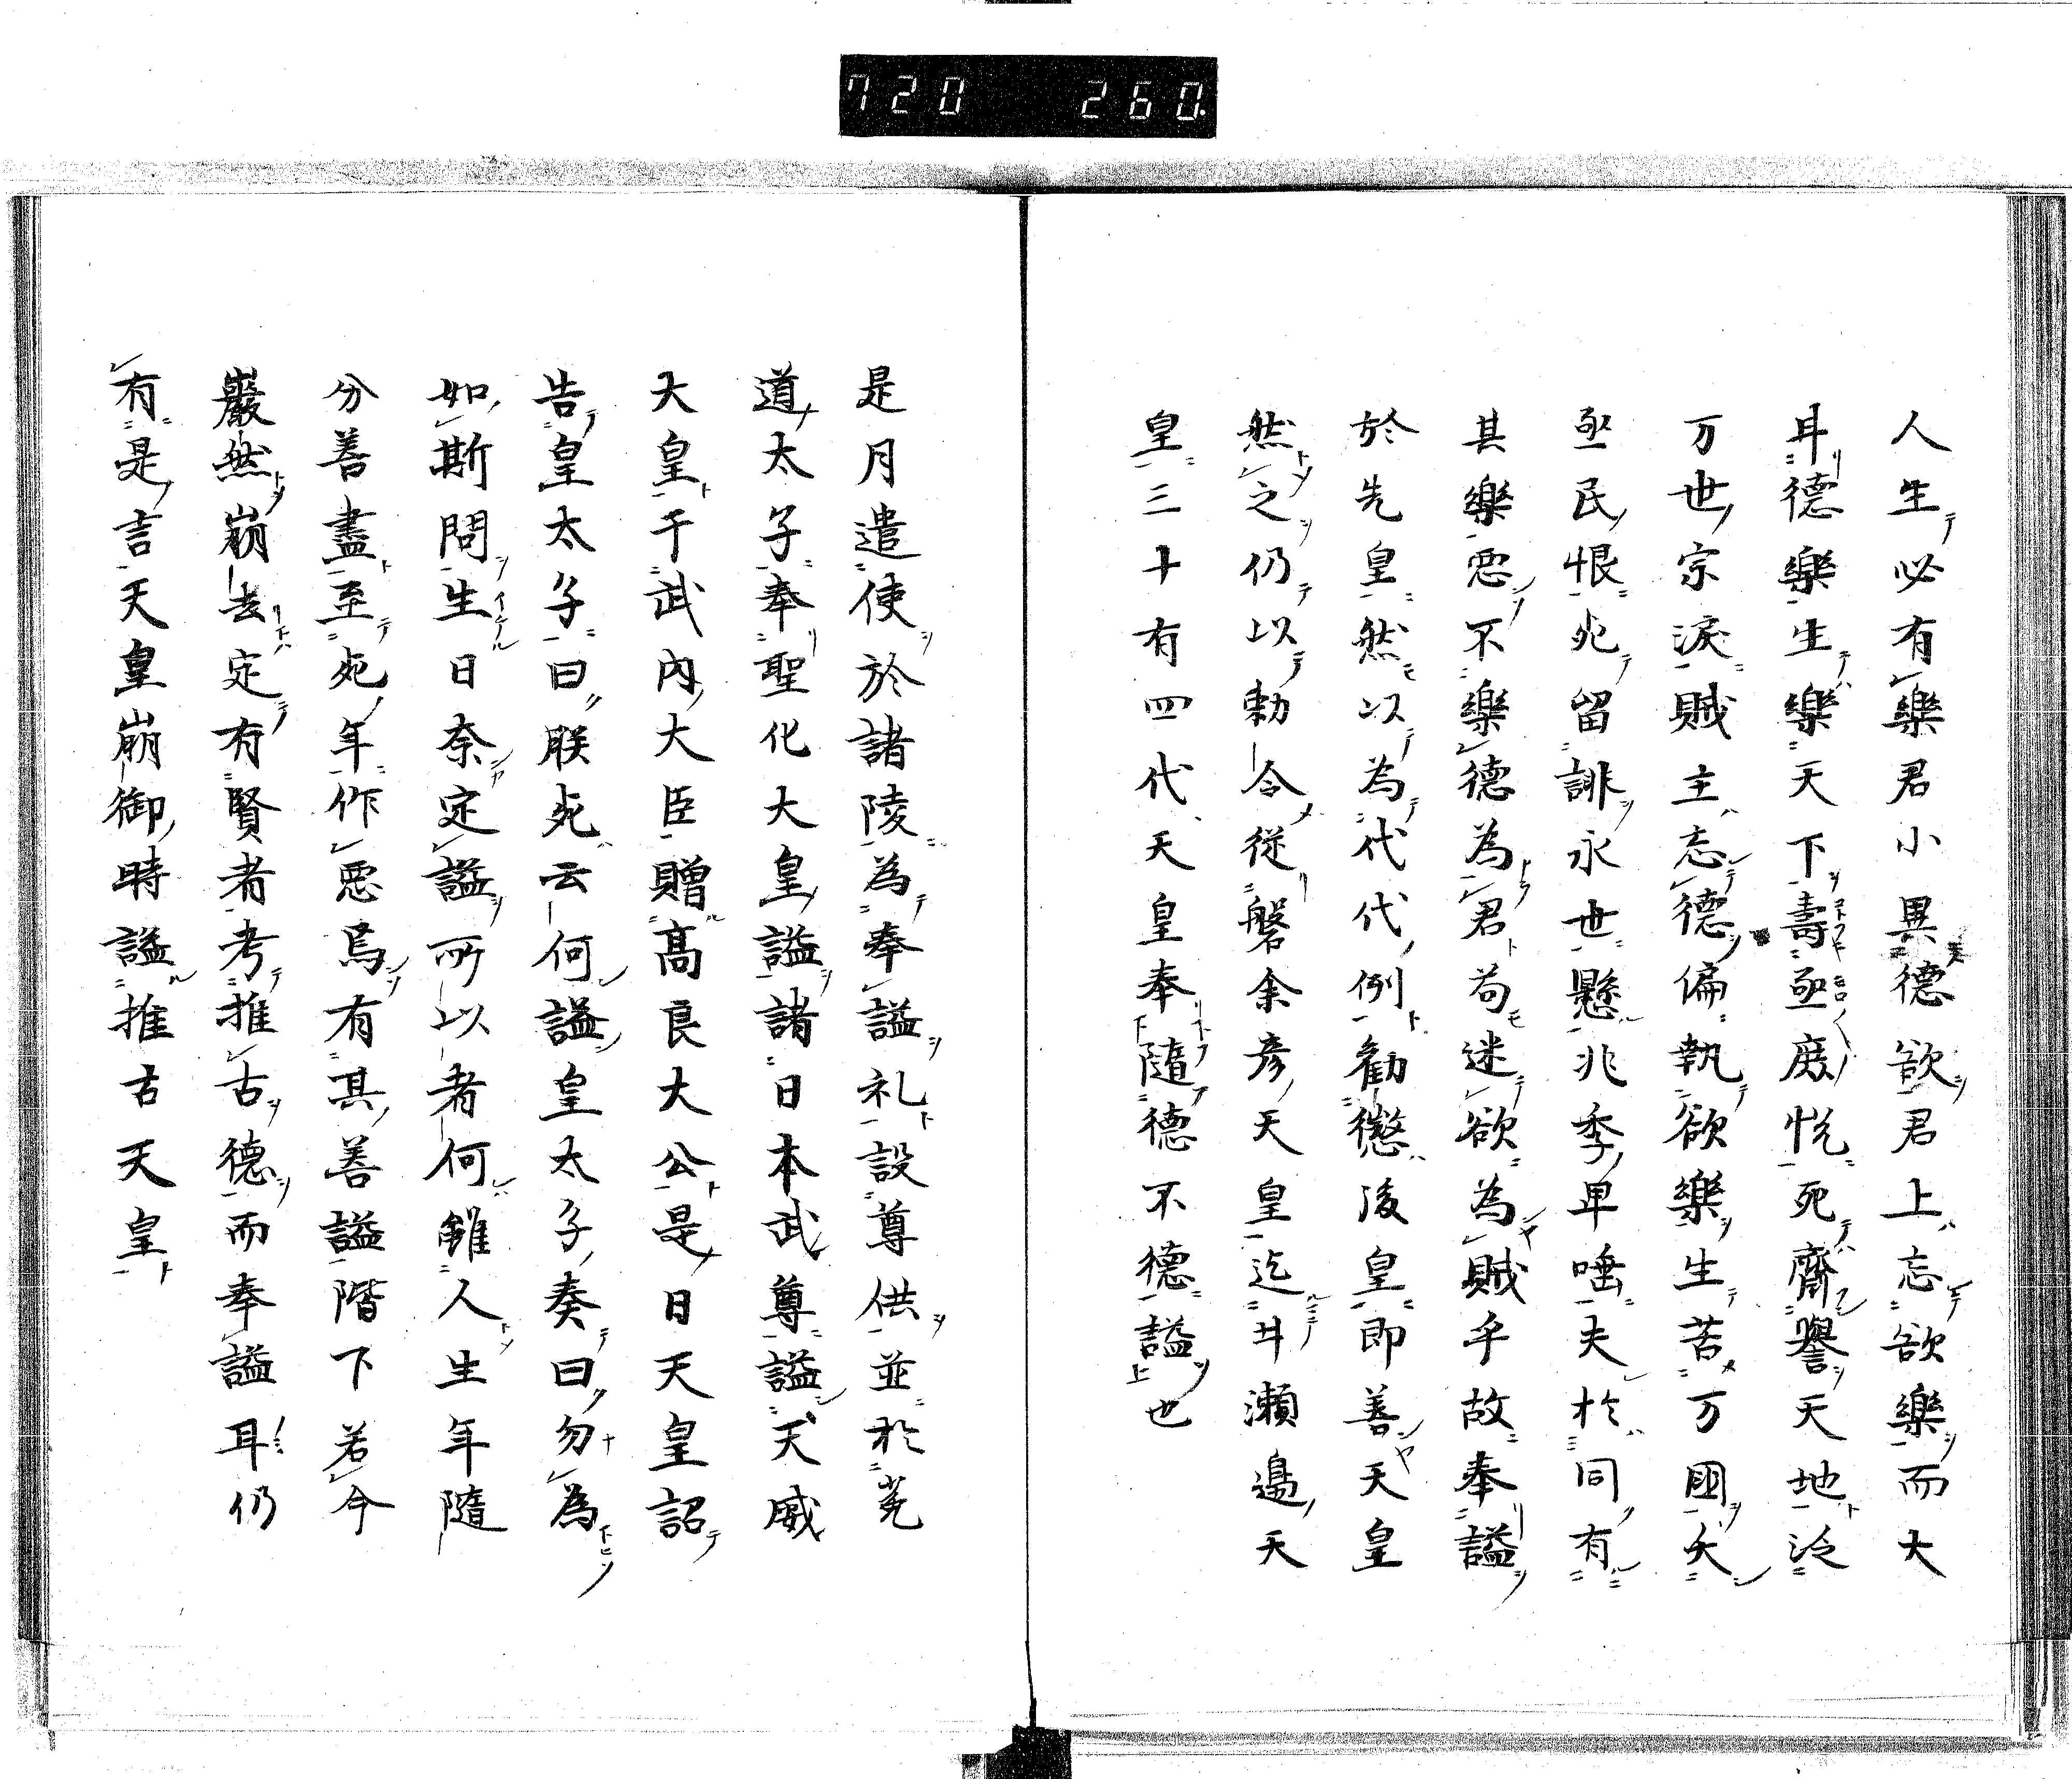 720 260.
人生必有樂君小異德欲君上忘欲樂而大
耳德樂生樂天下壽亟廢悦死齋譽天地泠
万世宗淚賊主忘德偏執欲樂生苦万國夭
亟民恨死留誹永世懸兆季早唾夫於同有
其樂惡不樂德為君苟迷欲為賊乎故奉謚
於先皇然以為代代例勸懲後皇即善天皇
然之仍以勅令從磐余彦天皇迄井瀬邊天
皇三十有四代天皇奉隨德不德謚也
是月遣使於諸陵為奉謚礼設尊供並於菟
道太子奉聖化大皇謚諸日本武尊謚天威
大皇于武内大臣贈髙良大公是日天皇詔
告皇太子曰朕死云何謚皇太子奏曰勿為
如斯問生日奈定謚所以者何雖人生年隨
分善盡至死年作惡焉有其善謚階下若今
巖然崩去定有賢者考推古德而奉謚耳仍
有是言天皇崩御時謚推古天皇